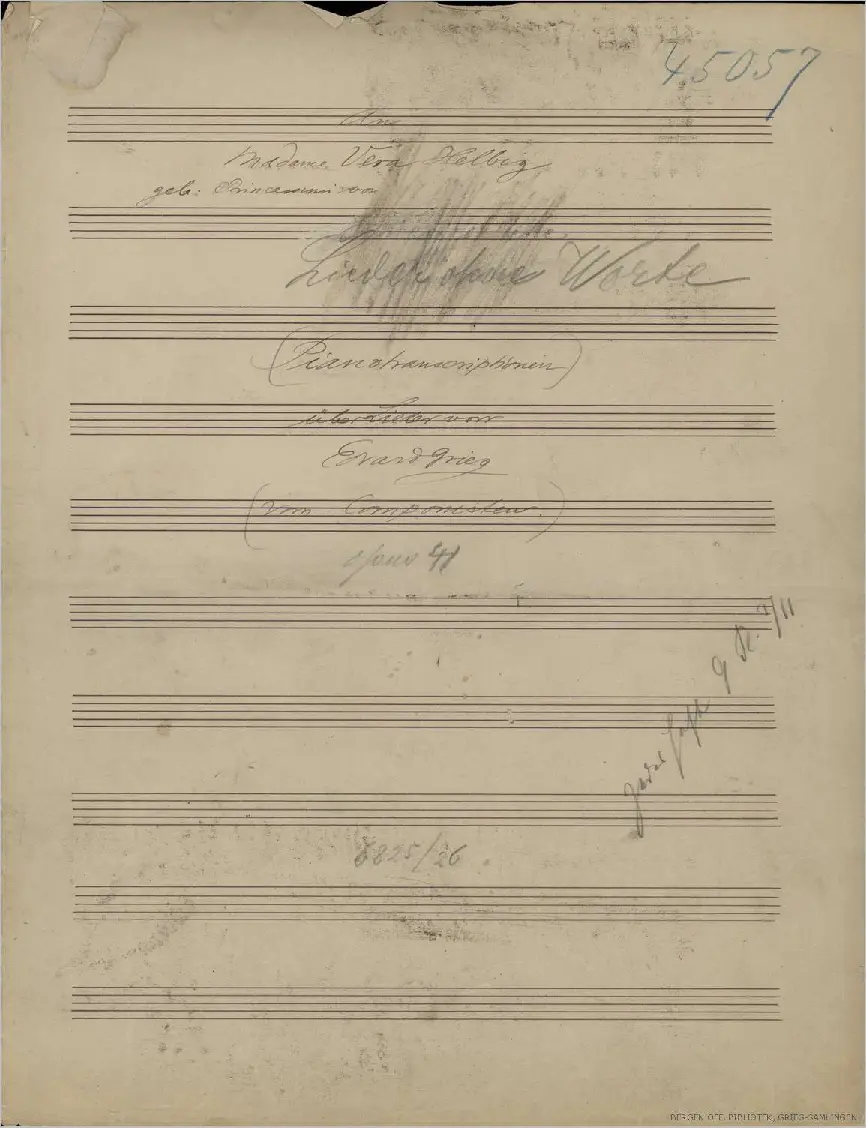 45057
An
Madame Vera Helbig
geb: Princessin von
Lieder ohne Worte
(Pianotranscriptionen)
über Lieder von
Edvard Grieg
(vom Componisten.)
opus 41
jedes Heft
8825/26
BERGEN OFF. BIBLIOTEK, GRIEG-SAMLINGEN